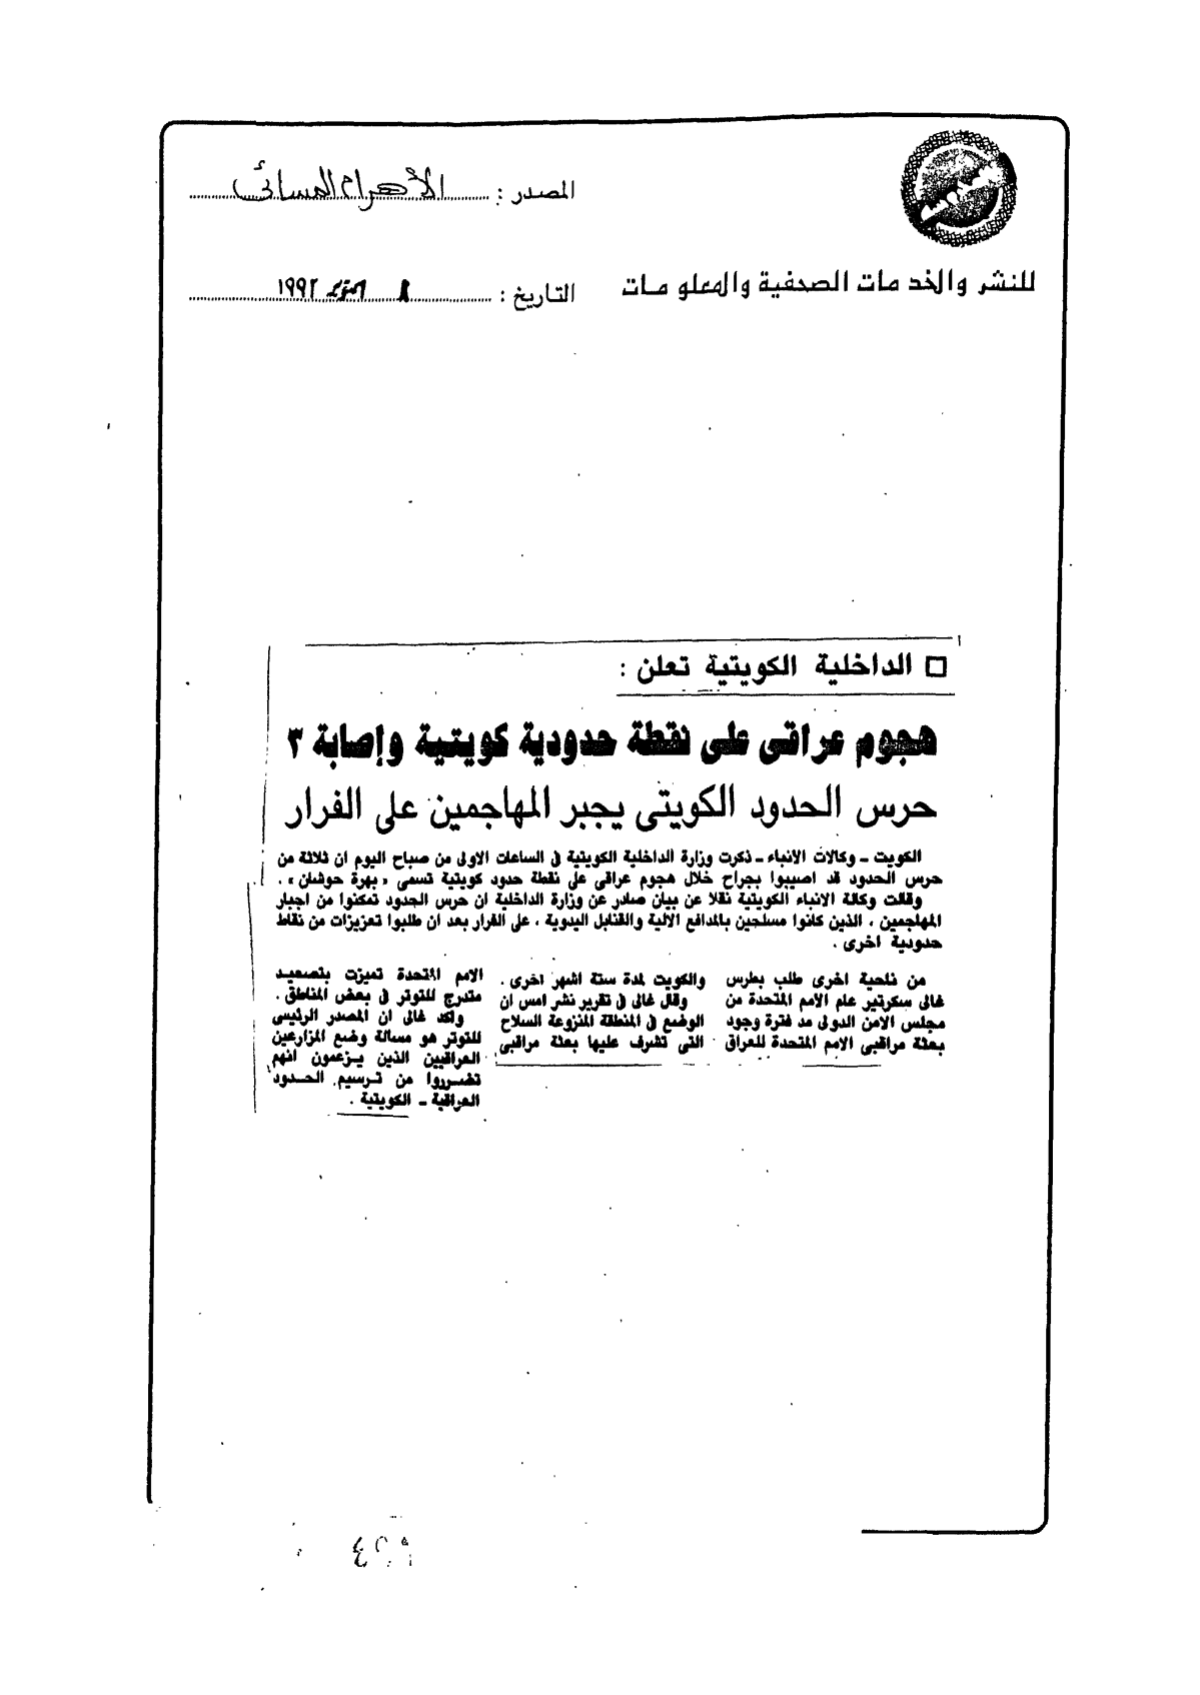 المصدر : الأهرام المسائى
للنشر والخدمات الصحفية والمعلومات
التاريخ : ٨ اكتوبر ١٩٩٢
□ الداخلية الكويتية تعلن :
هجوم عراقى على نقطة حدودية كويتية وإصابة ٣
حرس الحدود الكويتى يجبر المهاجمين على الفرار
الكويت ــ وكالات الأنباء ــ ذكرت وزارة الداخلية الكويتية فى الساعات الاولى من صباح اليوم ان ثلاثة من
حرس الحدود قد اصيبوا بجراح خلال هجوم عراقى على نقطة حدود كويتية تسمى « بهرة حوشان» .
وقالت وكالة الانباء الكويتية نقلا عن بيان صادر عن وزارة الداخلية ان حرس الحدود تمكنوا من اجبار
المهاجمين ، الذين كانوا مسلحين بالمدافع الالية والقنابل اليدوية ، على الفرار بعد ان طلبوا تعزيزات من نقاط
حدودية اخرى .
من ناحية اخرى طلب بطرس
غالى سكرتير عام الامم المتحدة من
مجلس الامن الدولى مد فترة وجود
بعثة مراقبى الامم المتحدة للعراق
والكويت لمدة ستة اشهر اخرى .
وقال غالى فى تقرير نشر امس ان
الوضع فى المنطقة المنزوعة السلاح
التى تشرف عليها بعثة مراقبى
الامم المتحدة تميزت بتصعيد
متدرج للتوتر فى بعض المناطق .
واكد غالى ان المصدر الرئيسى
للتوتر هو مسالة وضع المزارعين
العراقيين الذين يزعمون انهم
تضرروا من ترسيم الحدود
العراقية ــ الكويتية .